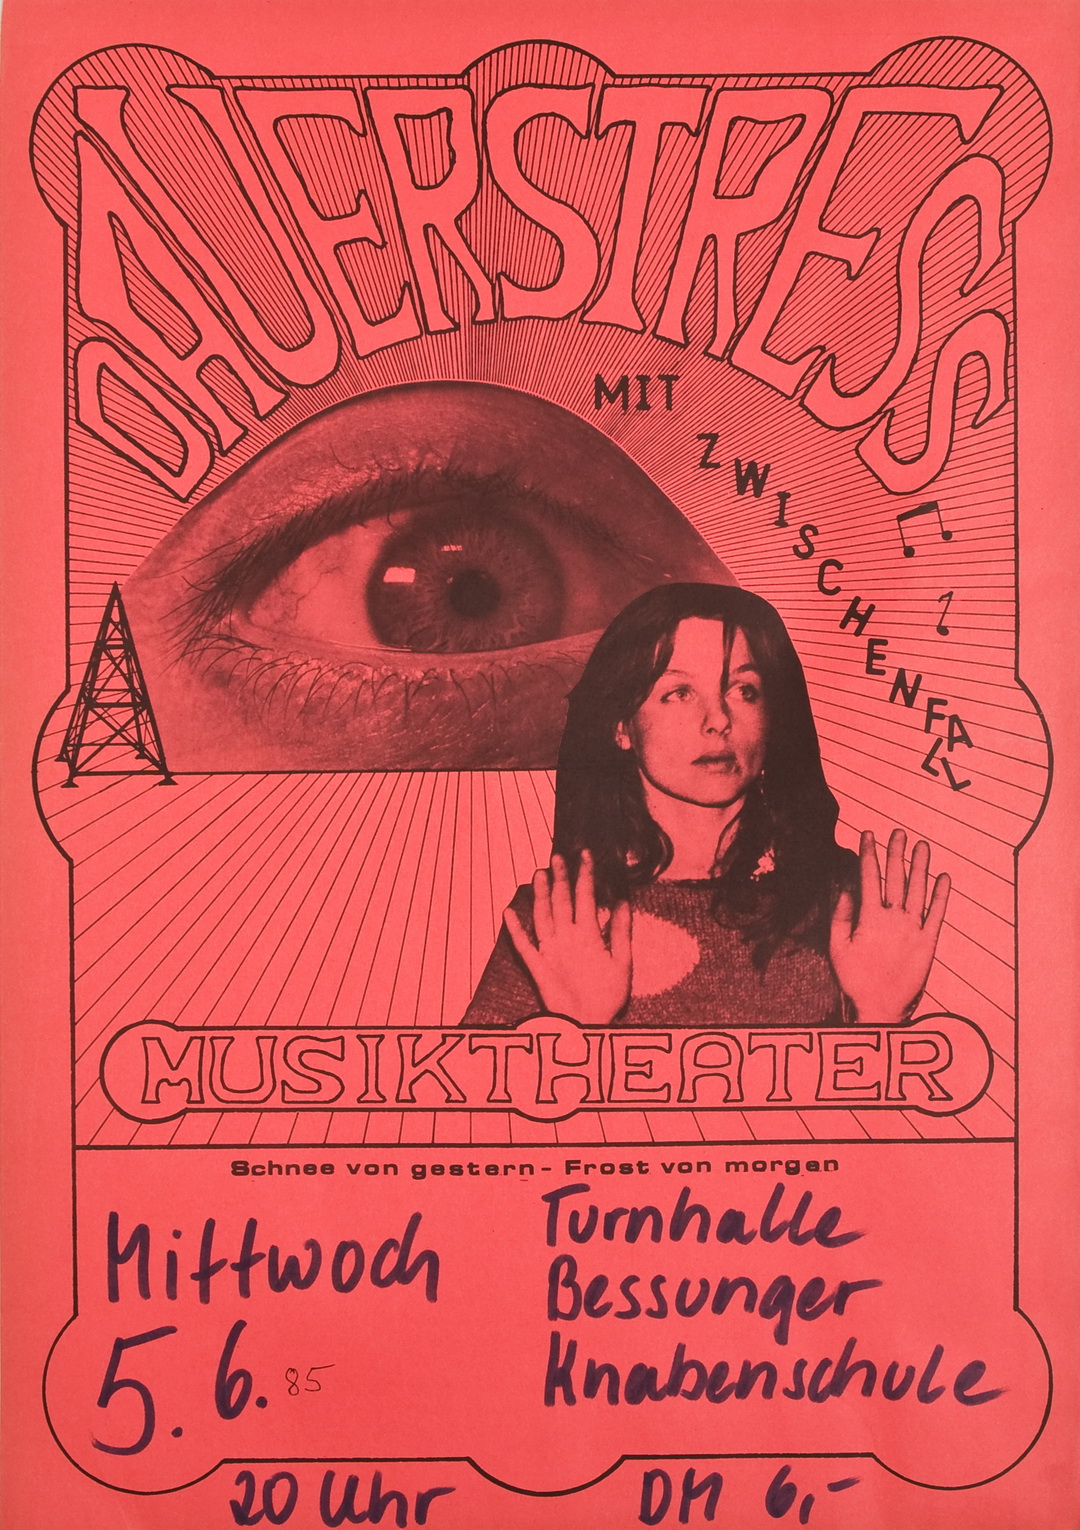 DAUERSTRESS
MIT
ZWISCHENFALL
MUSIKTHEATER
Schnee von gestern - Frost von morgen
Mittwoch
5. 6. 85
Turnhalle
Bessunger
Knabenschule
20 Uhr
DM 6,-